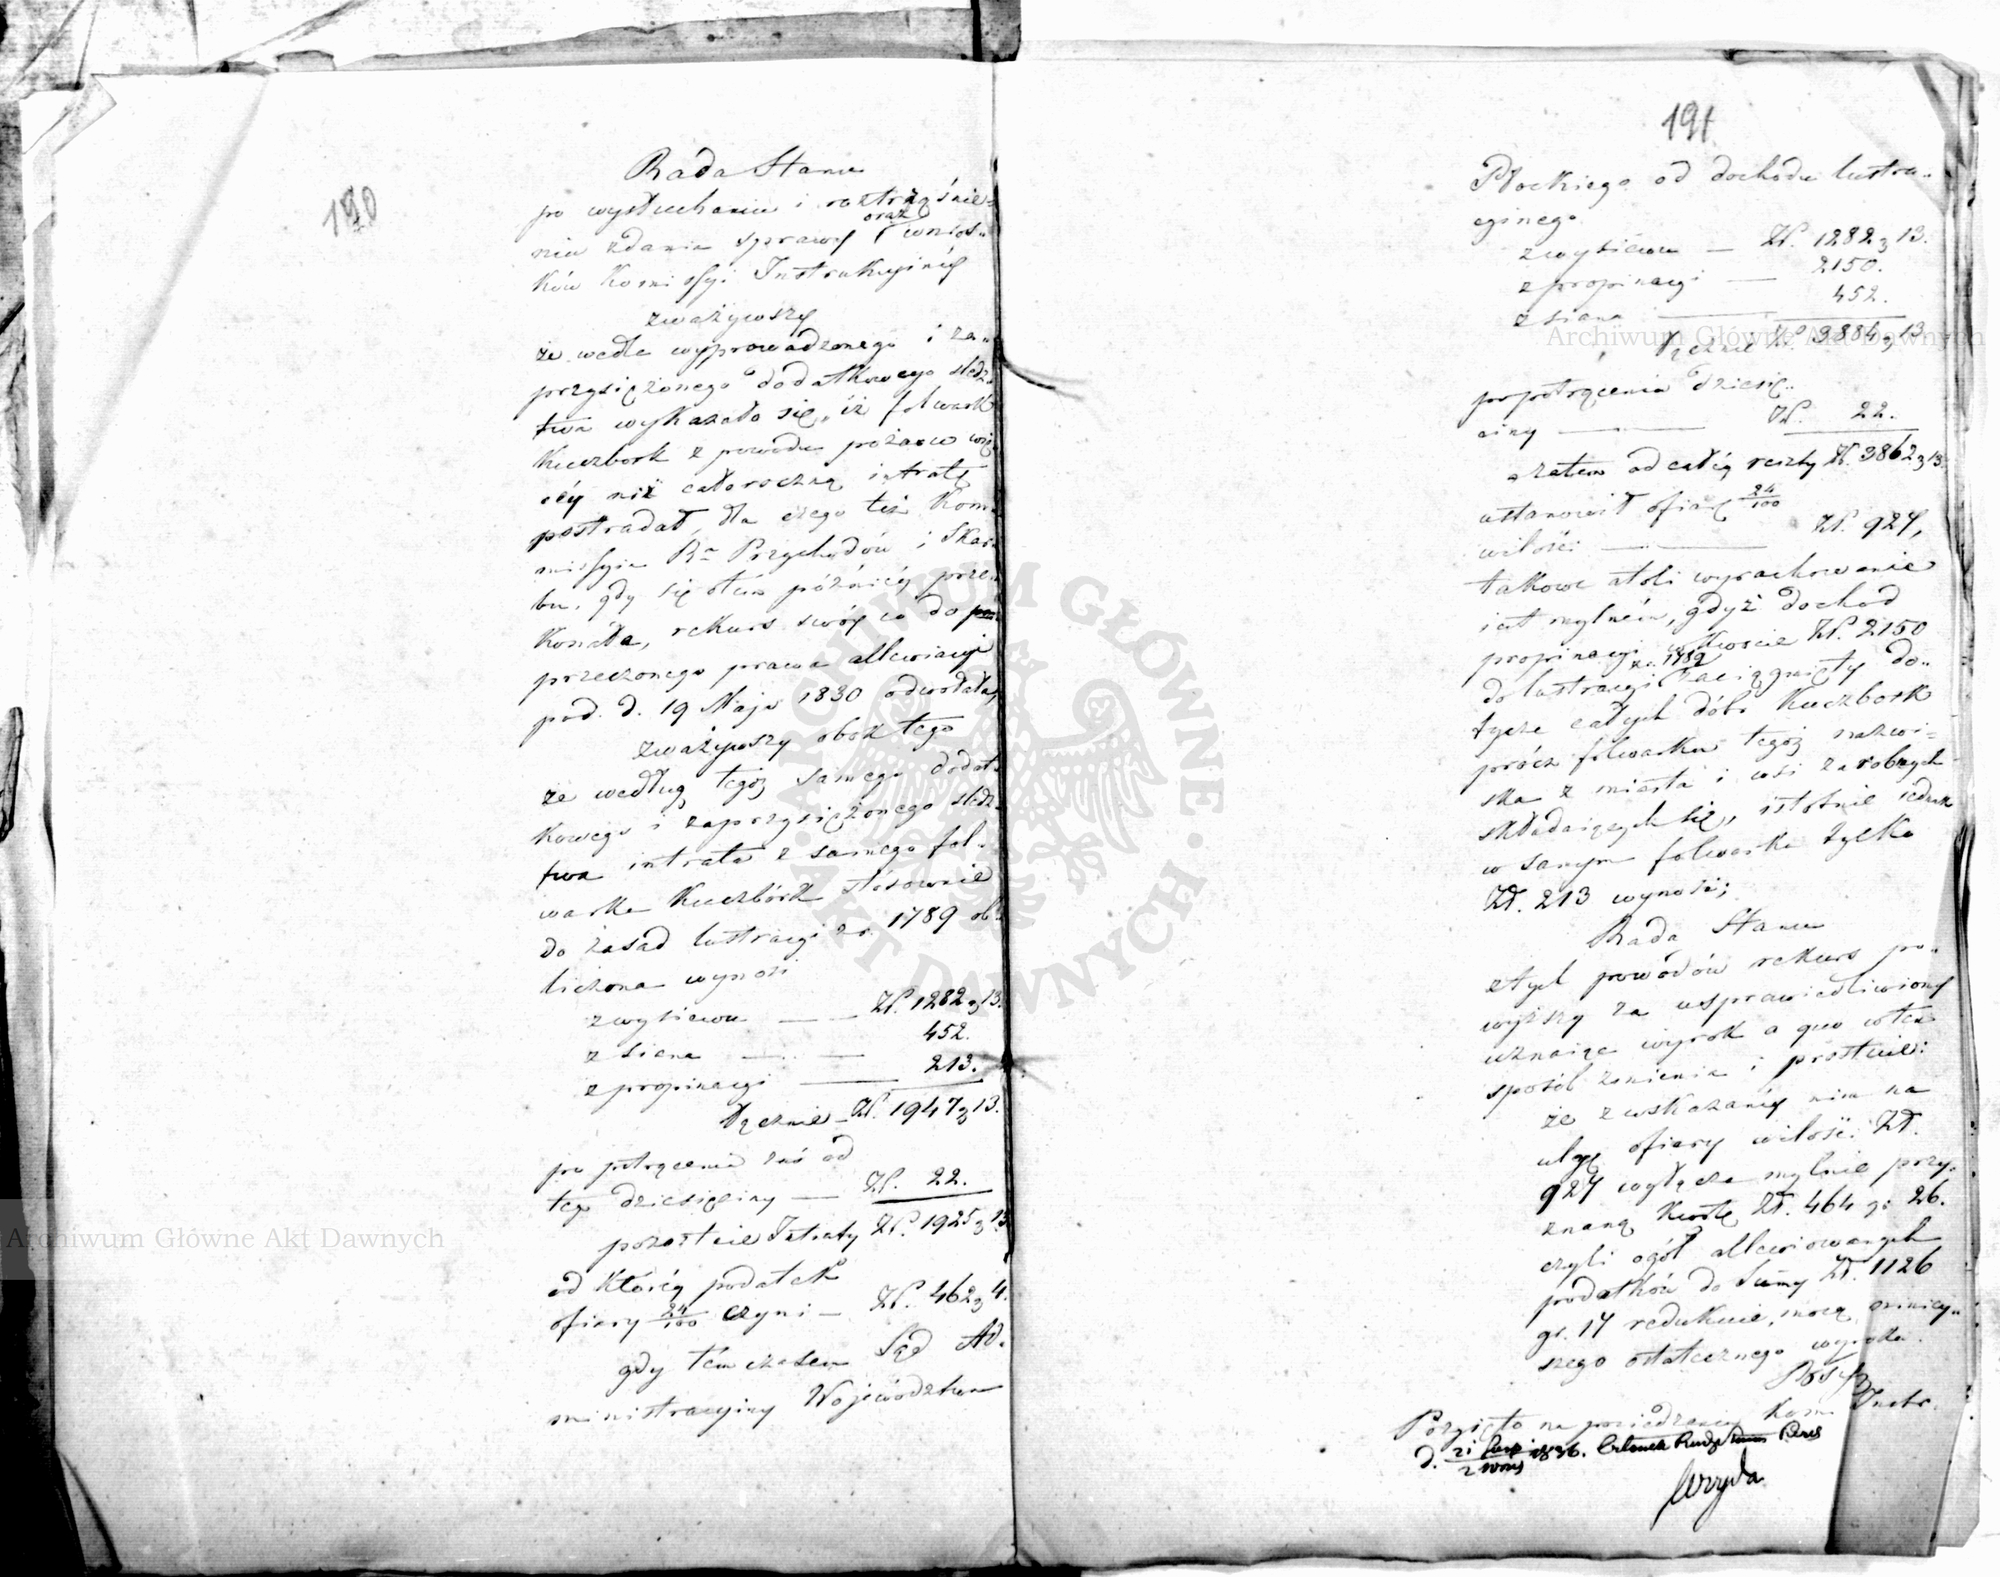 190
Rada Stanu
po wysłuchaniu i roztrząśnie-
niu zdania sprawy oraz wnios-
ków Kommissyi Instrukcyinéy
zważywszy
że wedle wyprowadzonego i za-
przysiężonego dodatkowego śledz-
twa wykazało się, iż folwark
Kuczbork z powodu pożaru wię-
céy niż całoroczną intratę
postradał, dla czego też Kom-
missyia R. Przychodów i Skar-
bu, gdy się o tém późniéy prze-
konała, rekurs swóy co do
przeczonego prawa allewiacyi
pod d. 19 Maja 1830 odwołała,
zważywszy obok tego
że według tegoż samego dodat-
kowego i zaprzysiężonego śledz-
twa intrata z samego fol-
warku Kuczbork stósownie
do zasad lustracyi z r. 1789 ob-
liczona wynosi
z wysiewu — Zł. 1282 g 13.
z siana — 452.
z propinacyi — 213.
łącznie — Zł. 1947 g 13.
po potrąceniu zaś od
tego dziesięciny — Zł. 22.
pozostaie Intraty Zł. 1925 g 13
od któréy podatek
ofiary 24/100 czyni — Zł. 462 g 4.
gdy tém czasem Sąd Ad-
ministracyiny Województwa
191
Płockiego od dochodu lustra-
cyinego
z wysiewu — Zł. 1282 g 13.
z propinacyi — 2150.
z siana — 452.
łącznie Zł. 3884 g 13
po potrąceniu dziesię-
ciny — Zł. 22.
zatem od całéy reszty Zł. 3862 g 13
ustanowił ofiarę 24/100
w ilości — Zł. 927,
takowe atoli wyrachowanie
iest mylném, gdyż dochod
propinacyi w kwocie Zł. 2150
do lustracyi z r. 1789 zaciągnięty do-
tycze całych dóbr Kuczbork
prócz folwarku tegoż nazwi-
ska z miasta i wsi zarobnych
składaiących się, istotnie iednak
w samym folwarku tylko
Zł. 213 wynosi;
Rada Stanu
z tych powodów rekurs po-
wyższy za usprawiedliwiony
uznaiąc wyrok a quo w ten
sposób zmienia i prostuie:
że z wskazanéy nim na
ulgę ofiary w ilości Zł.
927 wyłącza mylnie przy-
znaną kwotę Zł. 464 gr 26.
czyli ogół allewiowanych
podatków do Summy Zł. 1126
gr. 17 redukuie, mocą niniey-
szego ostatecznego wyroku.
Przyięto na posiedzeniu Kom. Instr.
Archiwum Główne Akt Dawnych
Archiwum Główne Akt Dawnych
ARCHIWUM GŁÓWNE · AKT DAWNYCH ·